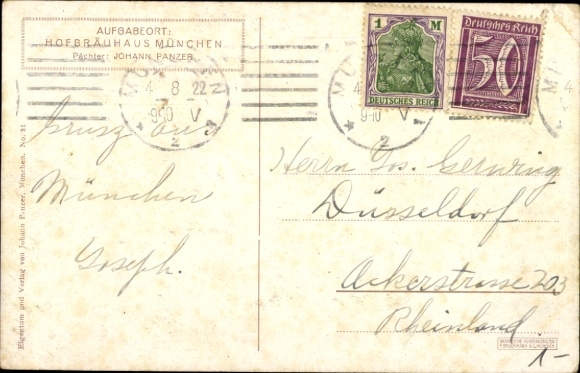 AUFGABEORT:
HOFBRÄUHAUS MÜNCHEN
Pächter: JOHANN PANZER
1 M
DEUTSCHES REICH
Deutsches Reich
50
4 8 22
9-10 V
2
4
9-10 V
2
Gruss aus
München
Joseph.
Herrn Jos. Gerwing
Düsseldorf
Ackerstrasse 203
Rheinland
1-
Eigentum und Verlag von Johann Panzer, München. No. 31